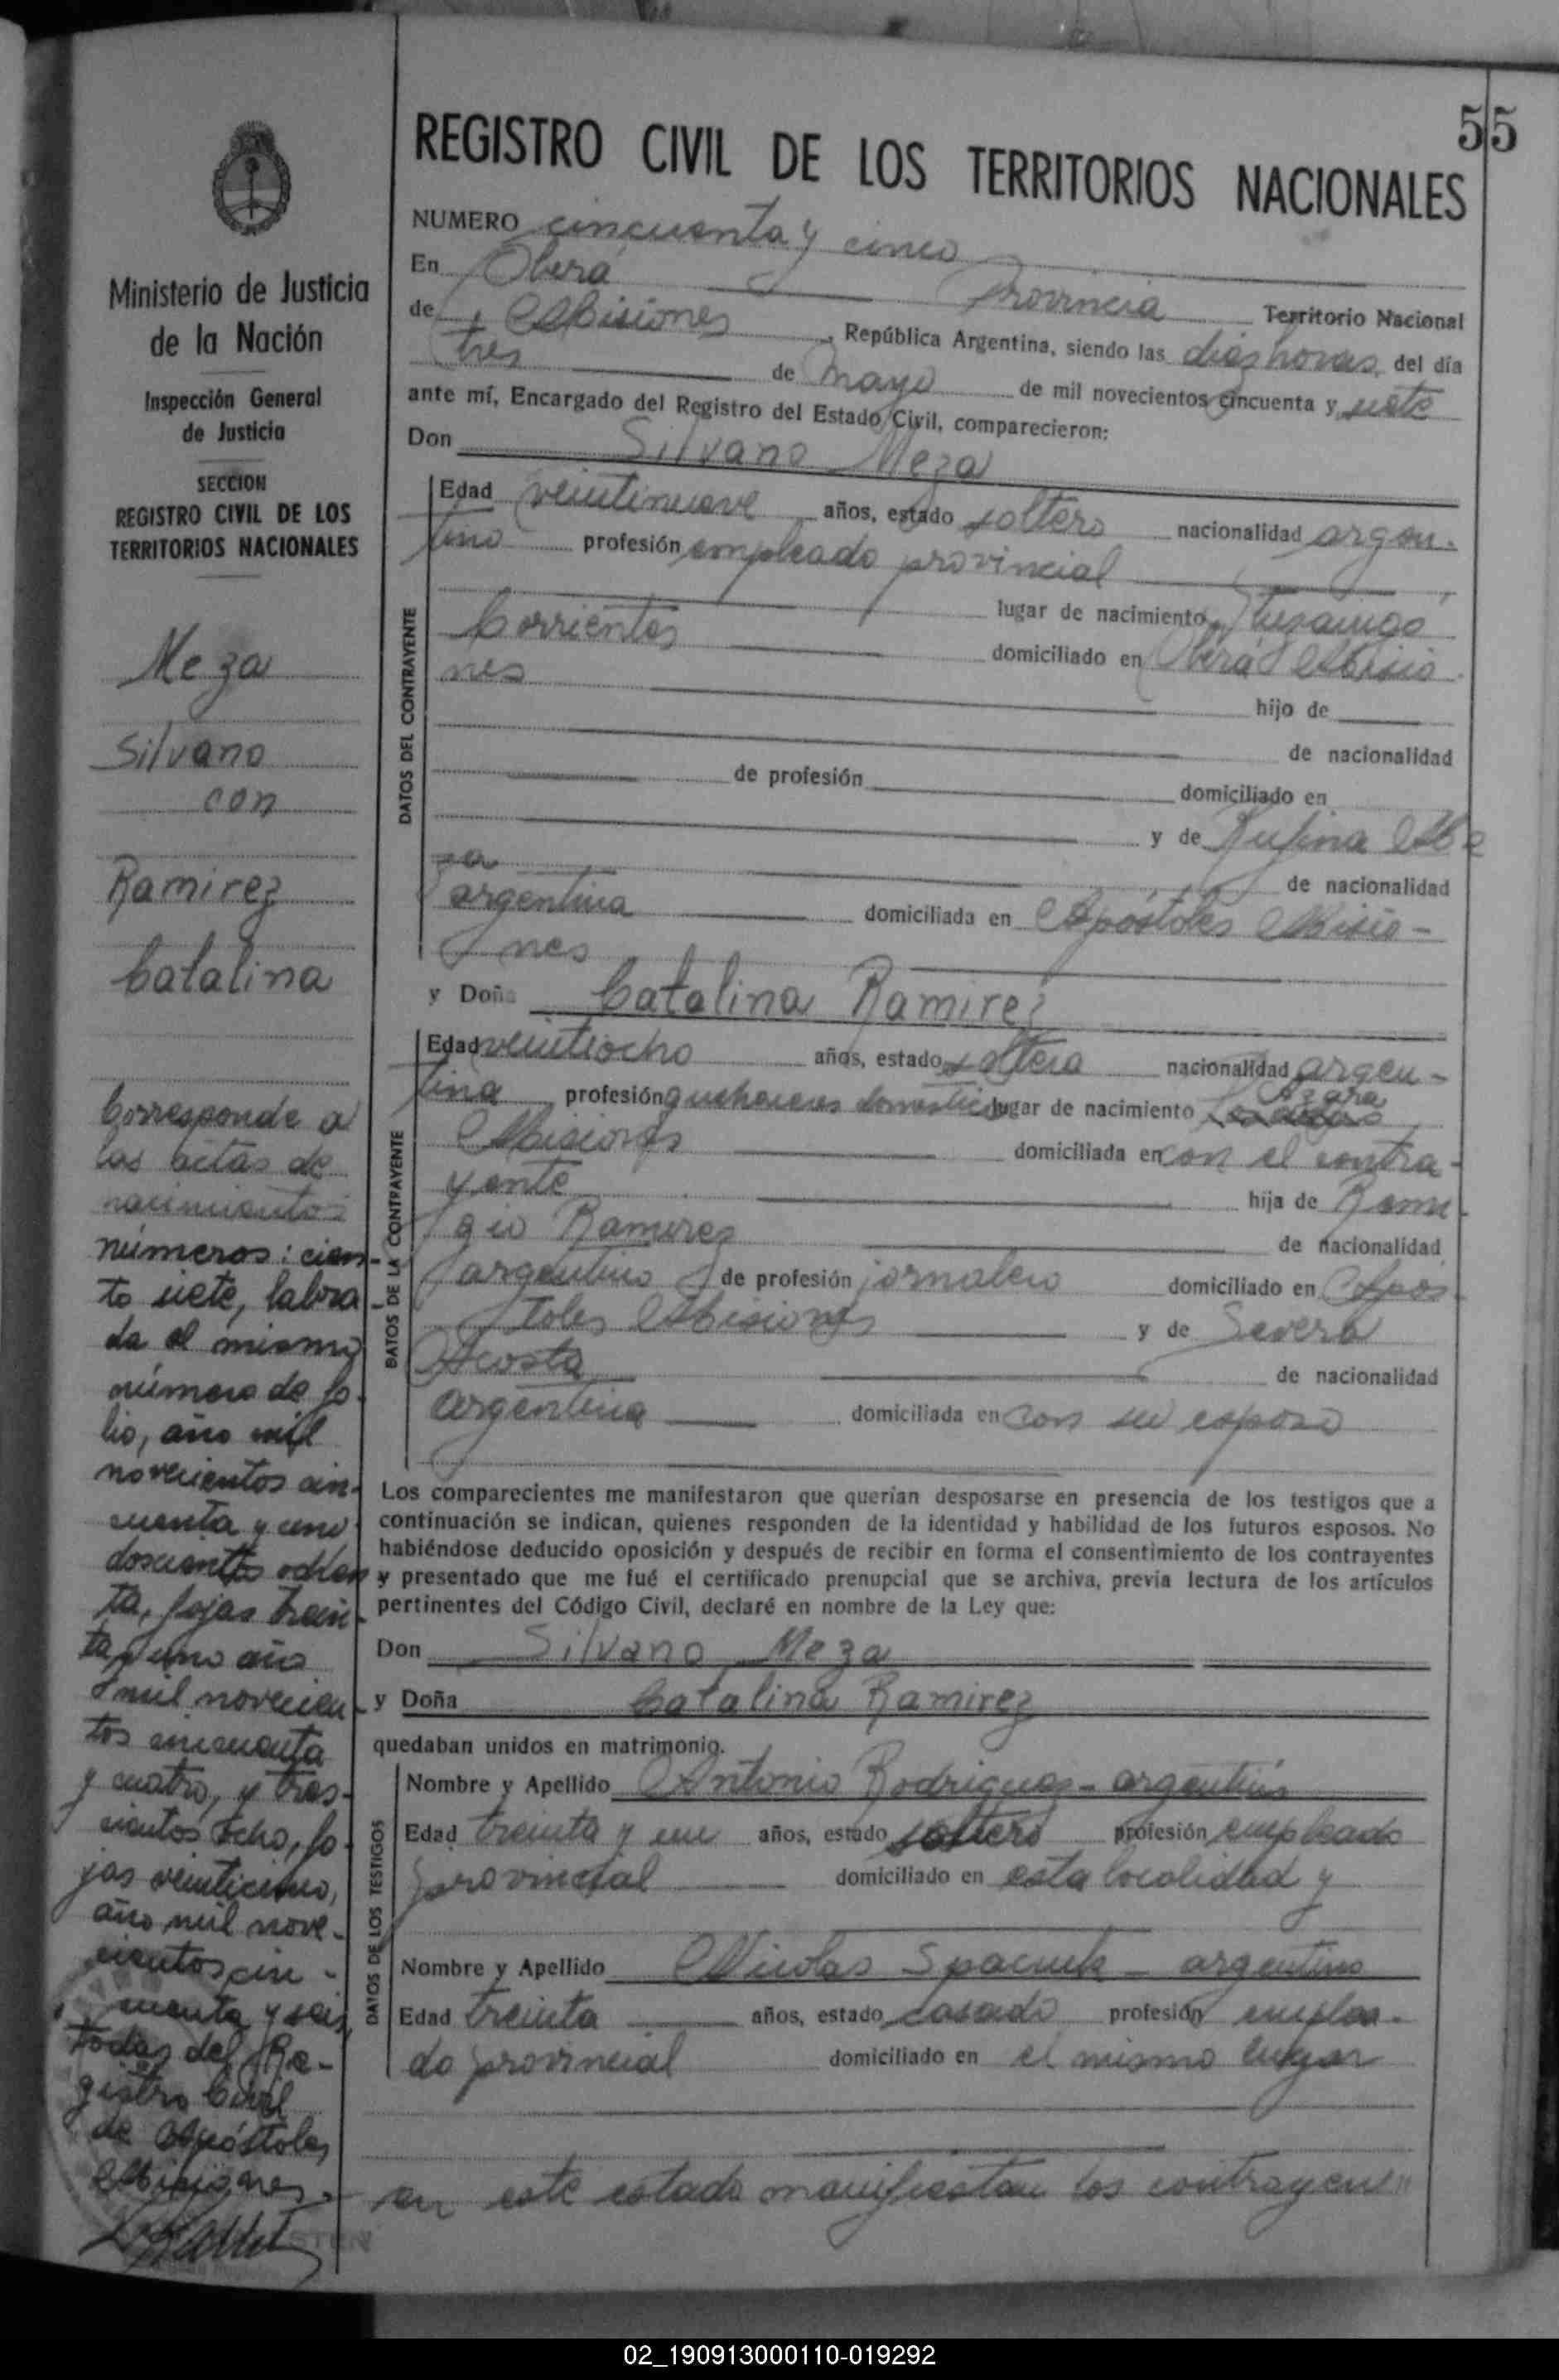 55
REGISTRO CIVIL DE LOS TERRITORIOS NACIONALES
Ministerio de Justicia
de la Nación
Inspección General
de Justicia
SECCION
REGISTRO CIVIL DE LOS
TERRITORIOS NACIONALES
Meza
Silvano
con
Ramirez
Catalina
Corresponde a
las actas de
nacimientos
números: cien-
to siete, labra-
da al mismo
número de fo-
lio, año mil
novecientos cin-
cuenta y uno
doscientos ochen
ta, fojas trein-
ta y uno año
mil novecien-
tos cincuenta
y cuatro, y tres-
cientos ocho, fo-
jas veinticinco,
año mil nove-
cientos cin-
cuenta y seis,
todas del Re-
gistro Civil
de Apóstoles
Misiones.
NUMERO cincuenta y cinco
En Oberá Provincia Territorio Nacional
de Misiones, República Argentina, siendo las diez horas del día
tres de Mayo de mil novecientos cincuenta y siete
ante mí, Encargado del Registro del Estado Civil, comparecieron:
Don Silvano Meza
DATOS DEL CONTRAYENTE
Edad veintinueve años, estado soltero nacionalidad argen-
tino profesión empleado provincial
lugar de nacimiento Ituzaingó
Corrientes domiciliado en Oberá Misio-
nes hijo de
de nacionalidad
de profesión domiciliado en
y de Rufina Me
za de nacionalidad
argentina domiciliada en Apóstoles Misio-
nes
y Doña Catalina Ramirez
DATOS DE LA CONTRAYENTE
Edad veintiocho años, estado soltera nacionalidad argen-
tina profesión quehaceres domesticos lugar de nacimiento Azara
Misiones domiciliada en con el contra-
yente hija de Remi-
gio Ramirez de nacionalidad
argentino de profesión jornalero domiciliado en Apos-
toles Misiones y de Severa
Acosta de nacionalidad
argentina domiciliada en con su esposo
Los comparecientes me manifestaron que querían desposarse en presencia de los testigos que a
continuación se indican, quienes responden de la identidad y habilidad de los futuros esposos. No
habiéndose deducido oposición y después de recibir en forma el consentimiento de los contrayentes
y presentado que me fué el certificado prenupcial que se archiva, previa lectura de los artículos
pertinentes del Código Civil, declaré en nombre de la Ley que:
Don Silvano Meza
y Doña Catalina Ramirez
quedaban unidos en matrimonio.
DATOS DE LOS TESTIGOS
Nombre y Apellido Antonio Rodriguez - argentino
Edad treinta y un años, estado soltero profesión empleado
provincial domiciliado en esta localidad y
Nombre y Apellido Nicolas Spaciuk - argentino
Edad treinta años, estado casado profesión emplea-
do provincial domiciliado en el mismo lugar
en este estado manifiestan los contrayen
02_190913000110-019292